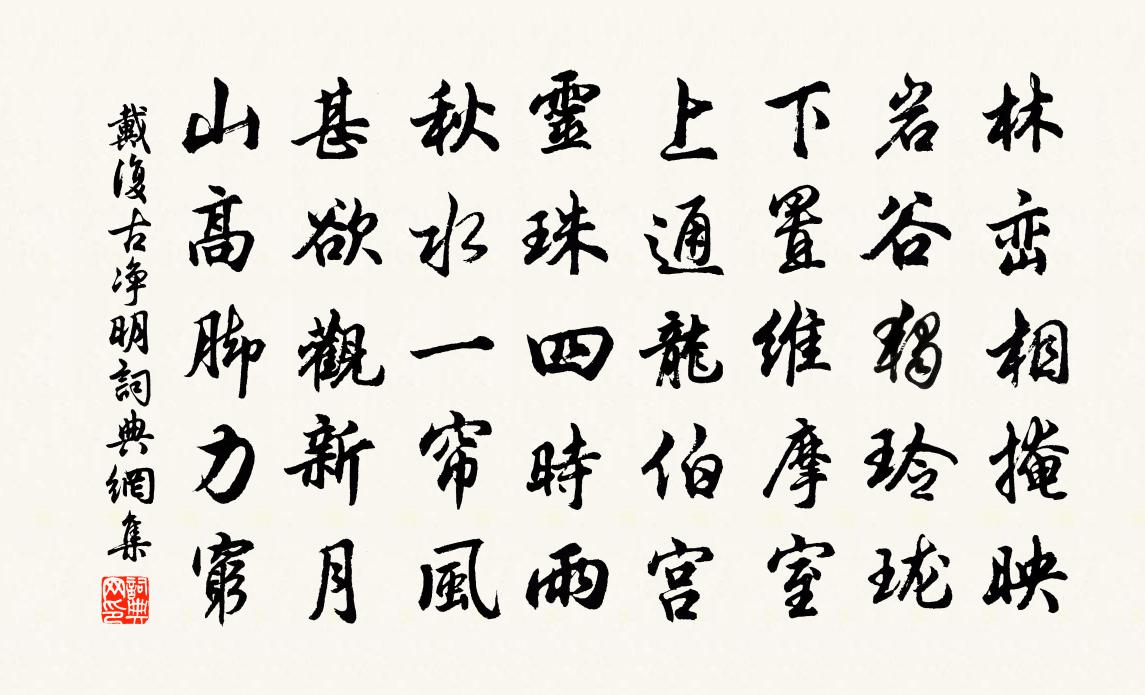 林峦相掩映
岩谷獨玲珑
下置維摩室
上通龍伯宫
靈珠四時雨
秋水一帘風
甚欲觀新月
山高脚力窮
戴復古净明詞典網集
詞典网印